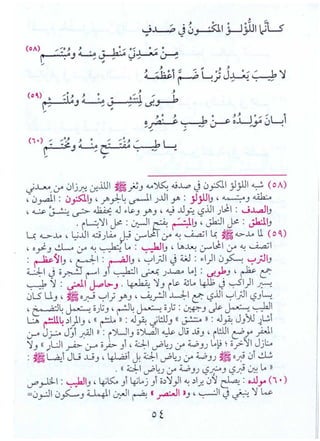 كَأَنَّمَا اللُّؤْلُؤُ المَكْنُونُ فِي صَدَفٍ
مِنْ مَعْدِنَيْ مَنْطِقٍ مِنْهُ وَمُبْتَسَمِ (٥٨)
لا طِيبَ يَعْدِلُ تُرْبًا ضَمَّ أَعْظُمَهُ
طُوبَى لِمُنْتَشِقٍ مِنْهُ وَمُلْتَثِمِ (٥٩)
أَبَانَ مَوْلِدُهُ عَنْ طِيبِ عُنْصُرِهِ
يا طِيبَ مُفْتَتَحٍ مِنْهُ وَمُخْتَتَمِ (٦٠)
(٥٨) شبه اللؤلؤ المكنون في صدفه بكلامه وثغره ﷺ اللذين يبرزان من معدني
منطقه ومبتسمه ، واللؤلؤ : هو الدر المسمى بالجوهر ، والمكنون : المصون ،
والصدف : المحار الذي يتولد فيه ، وهو وعاء له يحفظه حتى ينشق عنه ،
والمنطق : محل النطق ، والمبتسم بفتح السين : محل الابتسام .
(٥٩) لما مدحه ﷺ بما اتصف به من المحاسن قبل مفارقته الدنيا ، مدحه بما
اتصف به من المحاسن بعدها ، والطيب : ما يتطيب به من مسك ونحوه ،
والترب يسكون الراء : لغة في التراب ، والضم : الجمع ، والأعظم :
جمع عظم ، وطوبى : إما مصدر بمعنى التطيب أو اسم لشجرة في الجنة
يسير الراكب في ظلها مائة عام ولا يقطعها . وحاصل المعنى : لا طيب
يساوي التراب الذي جمع الجسد الشريف ، وهو تراب قبره ﷺ ، ولما كان
الطيب يستعمل على وجهين : تارة يستعمل بالشم ، وتارة يستعمل بالتضمخ ،
أشار للأول بقوله : « منتشق » وللثاني بقوله : « ملتثم » ، والمراد بالملتثم هنا
المعفر موضع اللثام ، وقد قال عليه الصلاة والسلام : « القبر أول منزل من
منازل الآخرة ؛ فإما روضة من رياض الجنة ، أو حفرة من حفر النار » ولا
شك أن قبره ﷺ روضة من رياض الجنة بل أفضلها ، وقد قال أيضا ﷺ :
« ما بين قبري ومنبري روضة من رياض الجنة » .
(٦٠) مولده : يصلح لأن يراد به الولادة أو زمانها أو مكانها ، والطيب : الخلوص
عما لا ينبغي في النسب ، و« العنصر » بضم العين المهملة وسكون النون =
٥٤